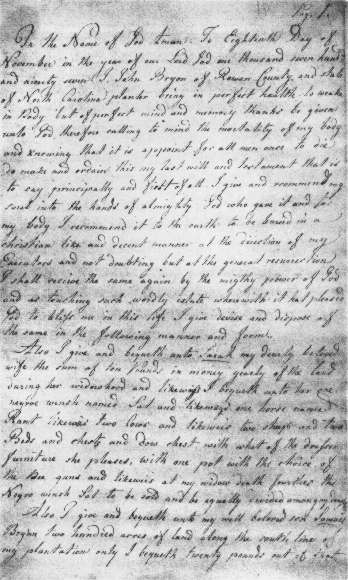 Page 1.
In the Name of God Amen. To Eighteenth Day of
November in the year of our Lord God one thousand seven hund
and ninety seven I John Bryon of Rowan County and state
of North Carolina planter being in perfect health to weake
in Body but of perfect mind and memory thanks be given
unto God therefore calling to mind the mortality of my body
and knowing that it is appoint for all men once to die
do make and ordain this my last will and testament that is
to say principally and first of all I give and recommend my
soul into the hands of almighty God who gave it and for
my body I recommend it to the earth to be buried in a
christian like and decent manner at the discretion of my
Executors and not doubting but at the general resurrection
I shall receive the same again by the migthy power of God
and as touching such wordly estate wherewith it hat pleased
God to bless me in this life I give devise and dispose of
the same in the following manner and form.
Also I give and begueth unto Sarah my dearly beloved
wife the sum of ten pounds in money yearly of the land
during her widowhood and likewise I begueth unto her one
negroe wench named Sal and likewise one horse name
likewise two cows and likewise two sheep and two
Beds and chest and Dow chest with what of the dresser
furniture she pleases, with one pot with the choice of
the Bea guns and likewis at my widow death
Negro wench Sal to be sold and be equally devided among my
Also I give and begueth unto my well beloved son
Bryan two hundred acres of land along the south line of
my plantation only I begueth twenty pounds out of that